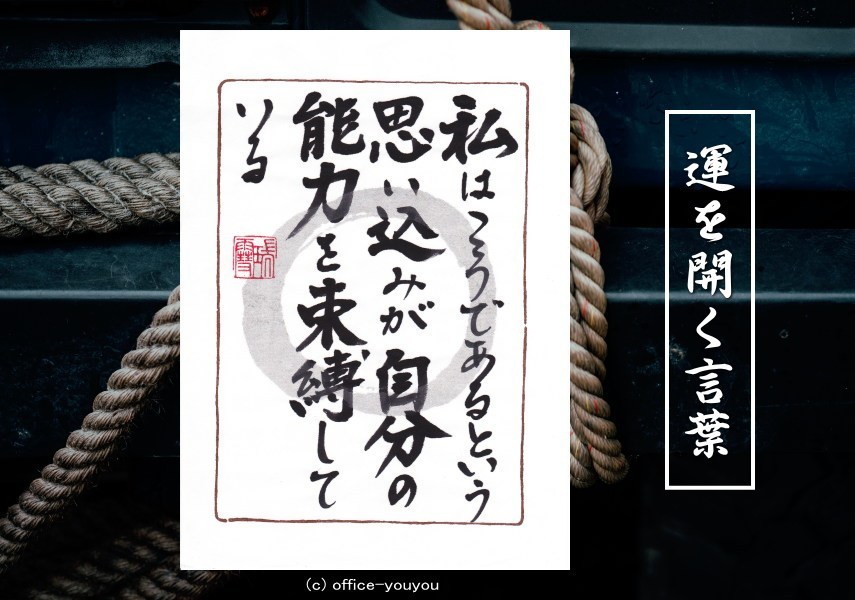 私はこうであるという
思い込みが自分の
能力を束縛して
いる
運を開く言葉
(c) office-youyou